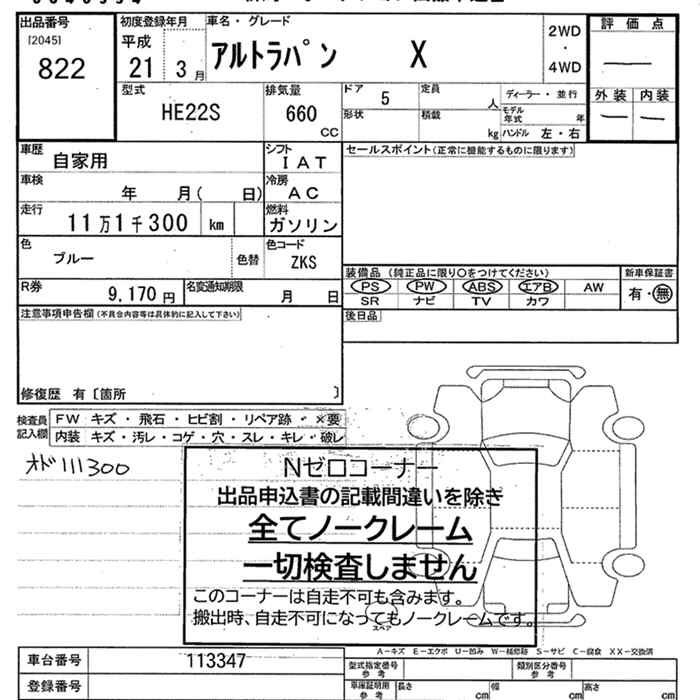 出品番号 初度登録年月 車名・グレード 2WD 評価点
[2045] 平成 ・
822 21 3月 アルトラパン X 4WD
型式 排気量 ドア 定員 ディーラー・並行 外装 内装
HE22S 660 CC 5 人 モデル年式 年
形状 積載 kg ハンドル 左・右
車歴 自家用 シフト IAT セールスポイント(正常に機能するものに限ります)
車検 年 月( 日) 冷房 AC
走行 11万1千300 km 燃料 ガソリン
色 ブルー 色替 色コード ZKS
装備品(純正品に限り○をつけてください) 新車保証書
PS PW ABS エアB AW 有・無
SR ナビ TV カワ
R券 9,170円 名変通知期限 月 日
注意事項申告欄(不具合内容等は具体的に記入して下さい) 後日品
修復歴 有〔箇所 〕
検査員記入欄 FW キズ・飛石・ヒビ割・リペア跡・×要
内装 キズ・汚レ・コゲ・穴・スレ・キレ・破レ
オド111300
Nゼロコーナー
出品申込書の記載間違いを除き
全てノークレーム
一切検査しません
このコーナーは自走不可も含みます。
搬出時、自走不可になってもノークレームです。
スペア
A-キズ E-エクボ U-凹み W-補修跡 S-サビ C-腐食 XX-交換済
車台番号 113347 型式指定番号参考 類別区分番号参考
登録番号 車庫証明用参考 長さ cm 幅 cm 高さ cm